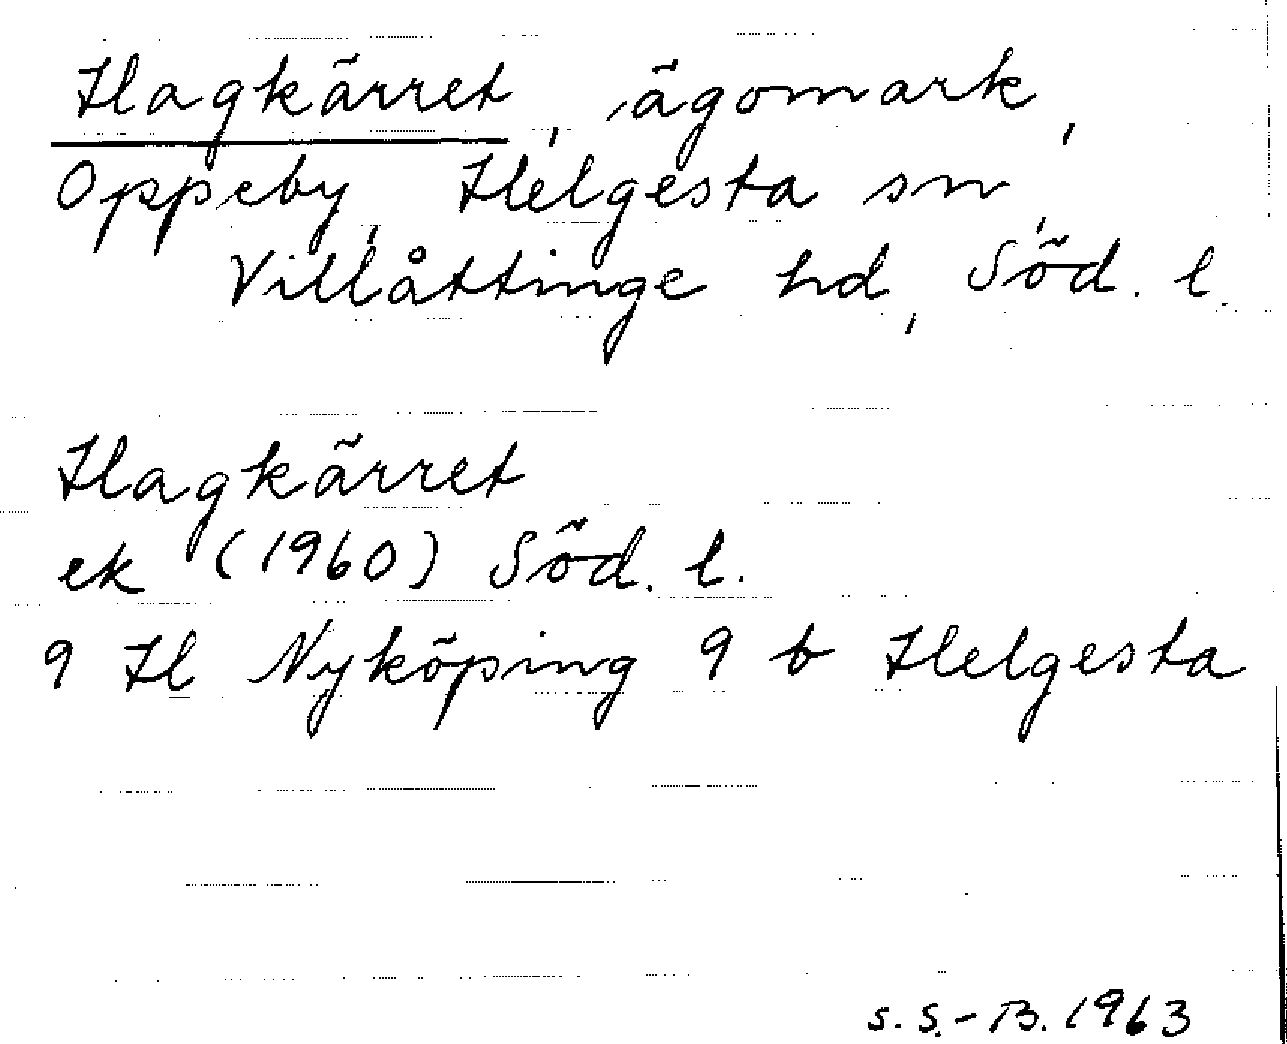 Hagkärret, ägomark,
Oppeby, Helgesta sn,
Villåttinge hd, Söd. l.
Hagkärret
ek (1960) Söd. l.
9 H Nyköping 9 b Helgesta
S. S.-B. 1963